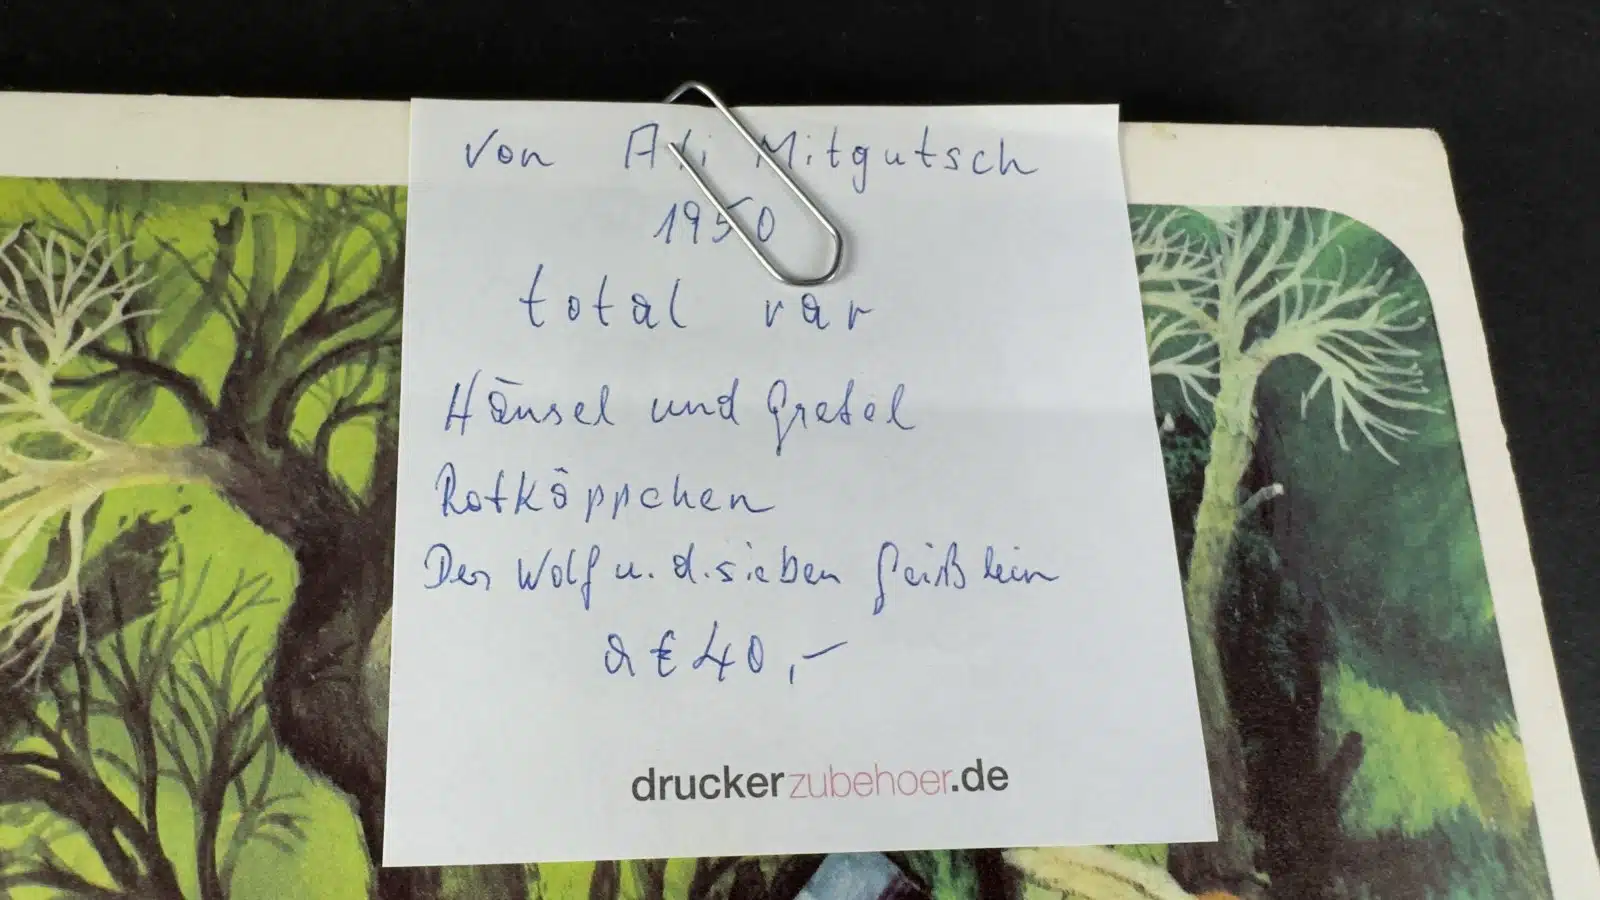 von Ali Mitgutsch
1950
total rar
Hänsel und Gretel
Rotkäppchen
Der Wolf u. d. sieben Geißlein
a € 40,-
druckerzubehoer.de